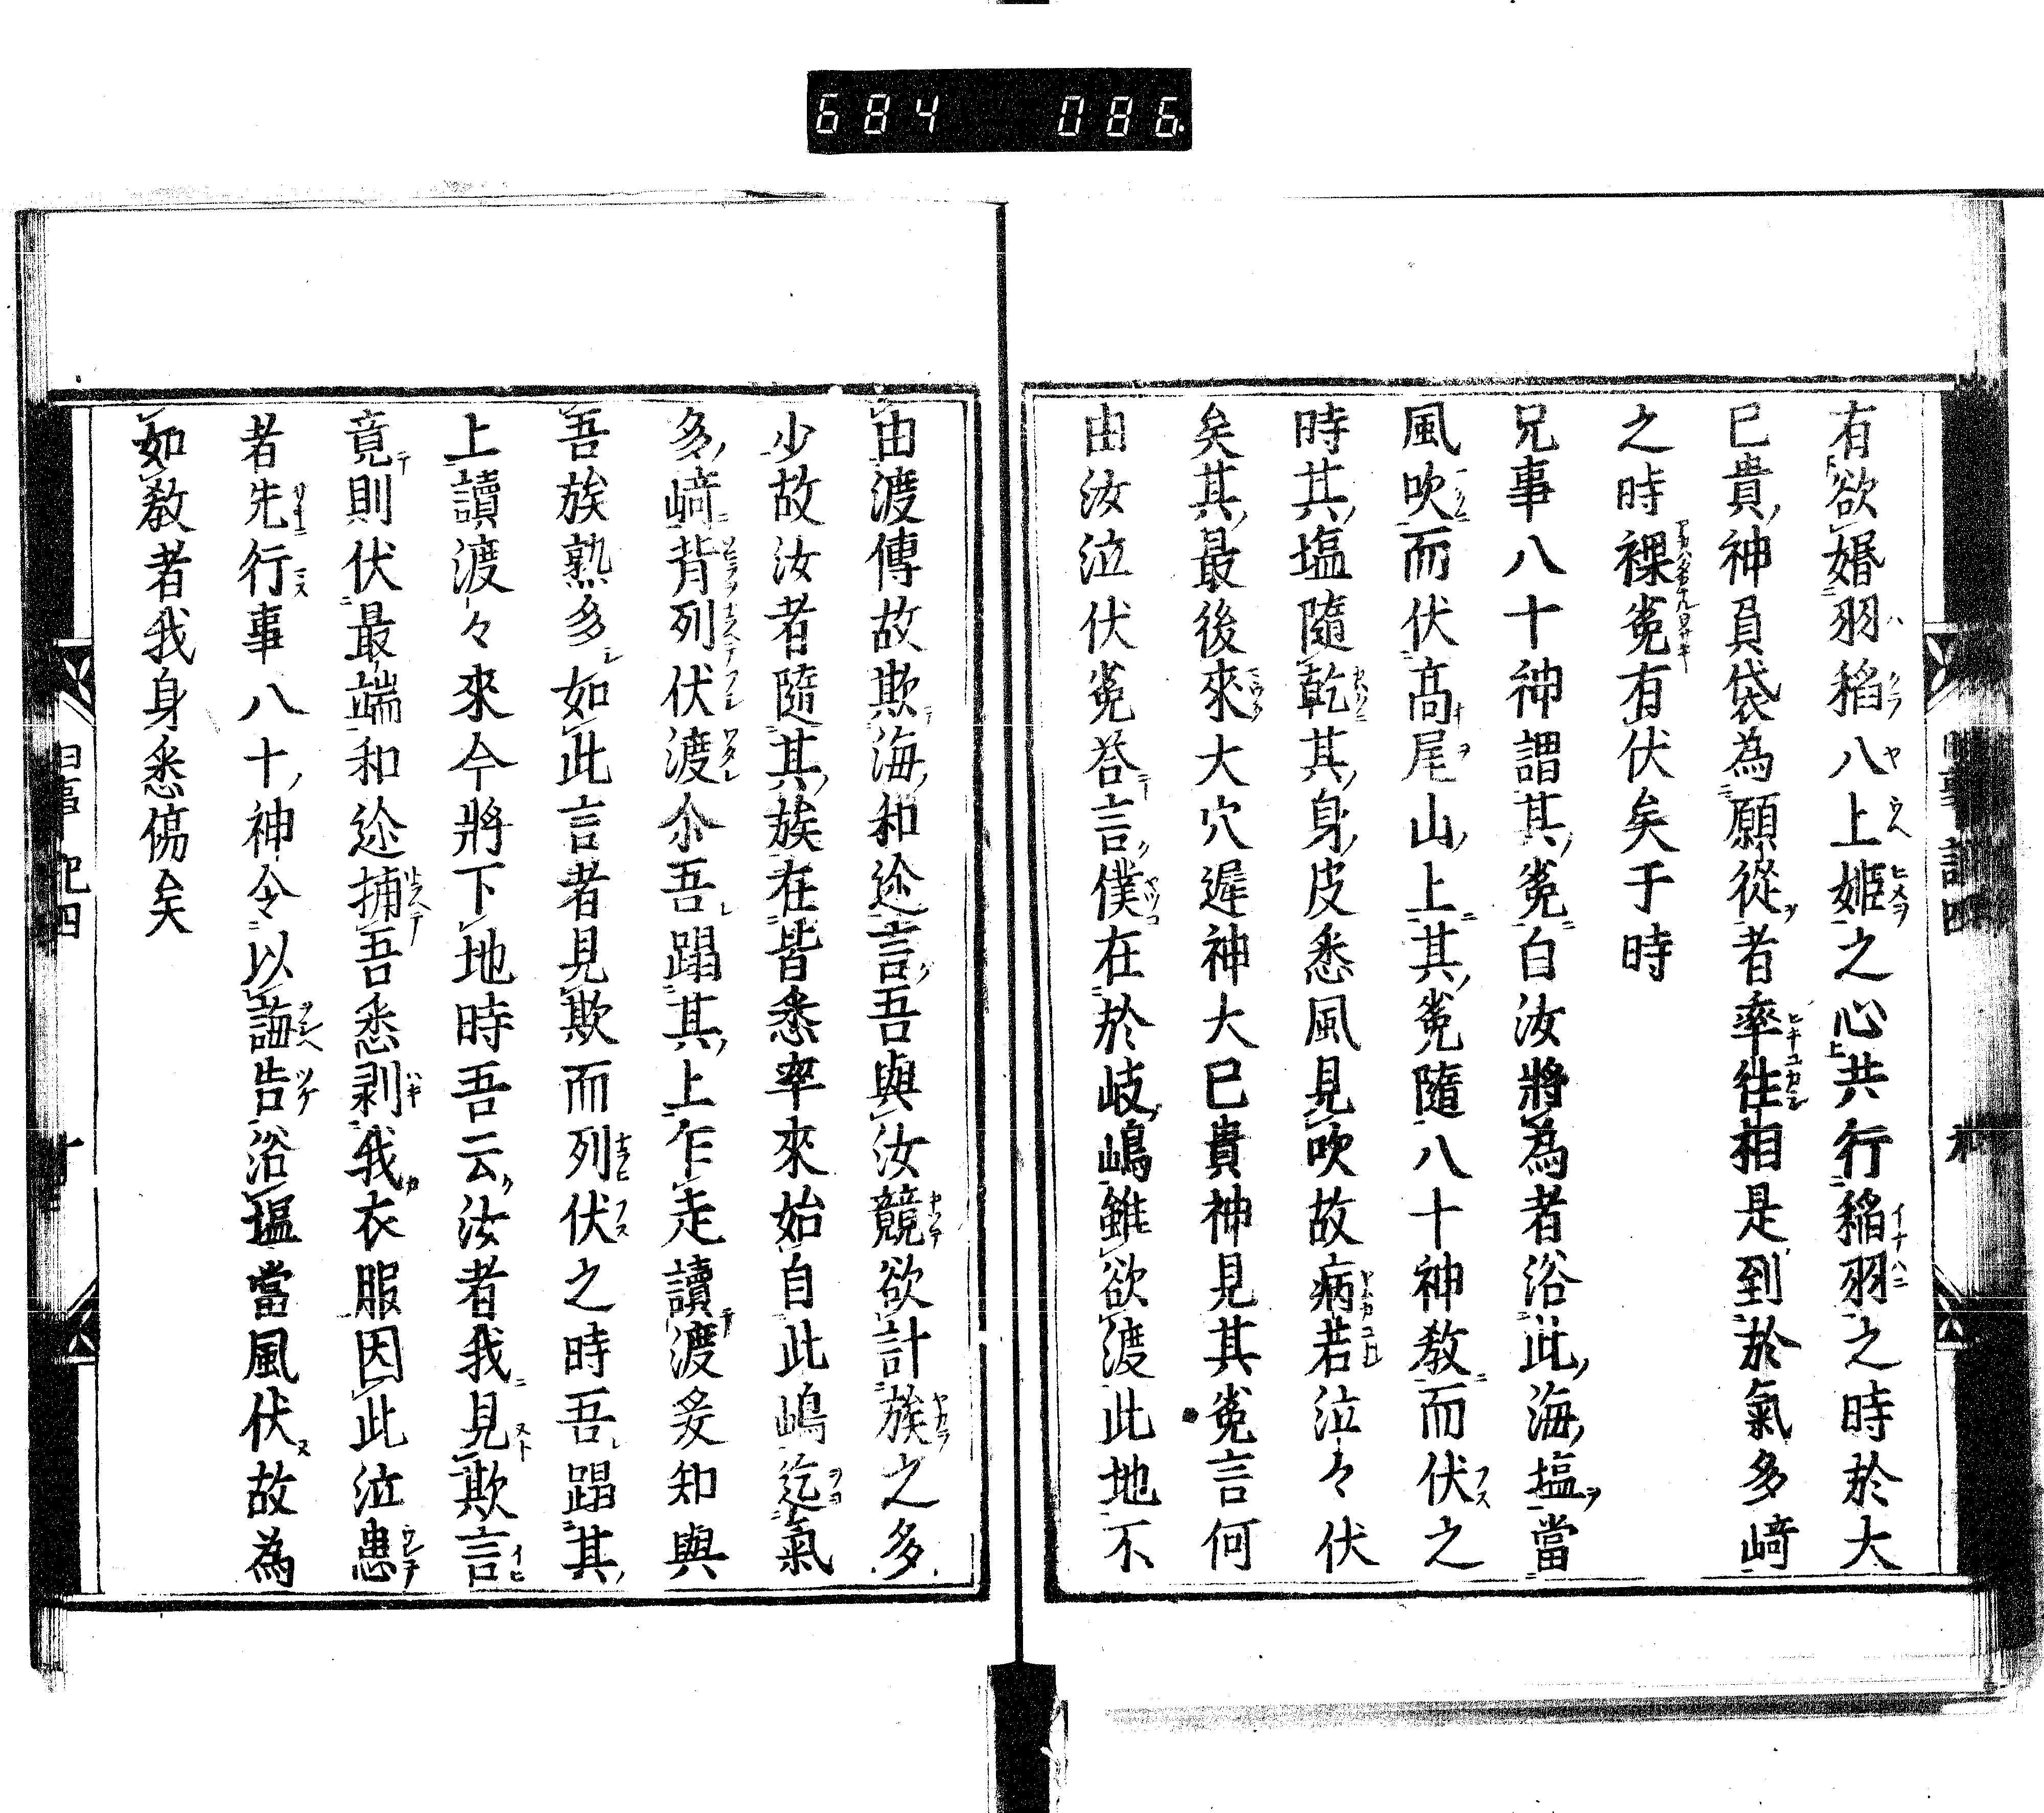 684 086
有欲婚羽稻八上姬之心共行稲羽之時於大
已貴神員袋為願從者率徃相是到於氣多﨑
之時裸菟有伏矣于時
兄事八十神謂其菟白汝將為者浴此海塩當
風吹而伏髙尾山上其菟隨八十神教而伏之
時其塩隨乾其身皮悉風見吹故病苦泣々伏
矣其最後來大穴遅神大已貴神見其菟言何
由汝泣伏菟荅言僕在於岐嶋雖欲渡此地不
由渡傳故欺海和迩言吾與汝競欲計族之多
少故汝者隨其族在皆悉率來始自此嶋迄氣
多﨑背列伏渡尒吾蹋其上乍走讀渡爰知與
吾族熟多如此言者見欺而列伏之時吾蹋其
上讀渡々來今將下地時吾云汝者我見欺言
竟則伏最端和迩捕吾悉剥我衣服因此泣患
者先行事八十神令以誨告浴塩當風伏故為
如教者我身悉傷矣